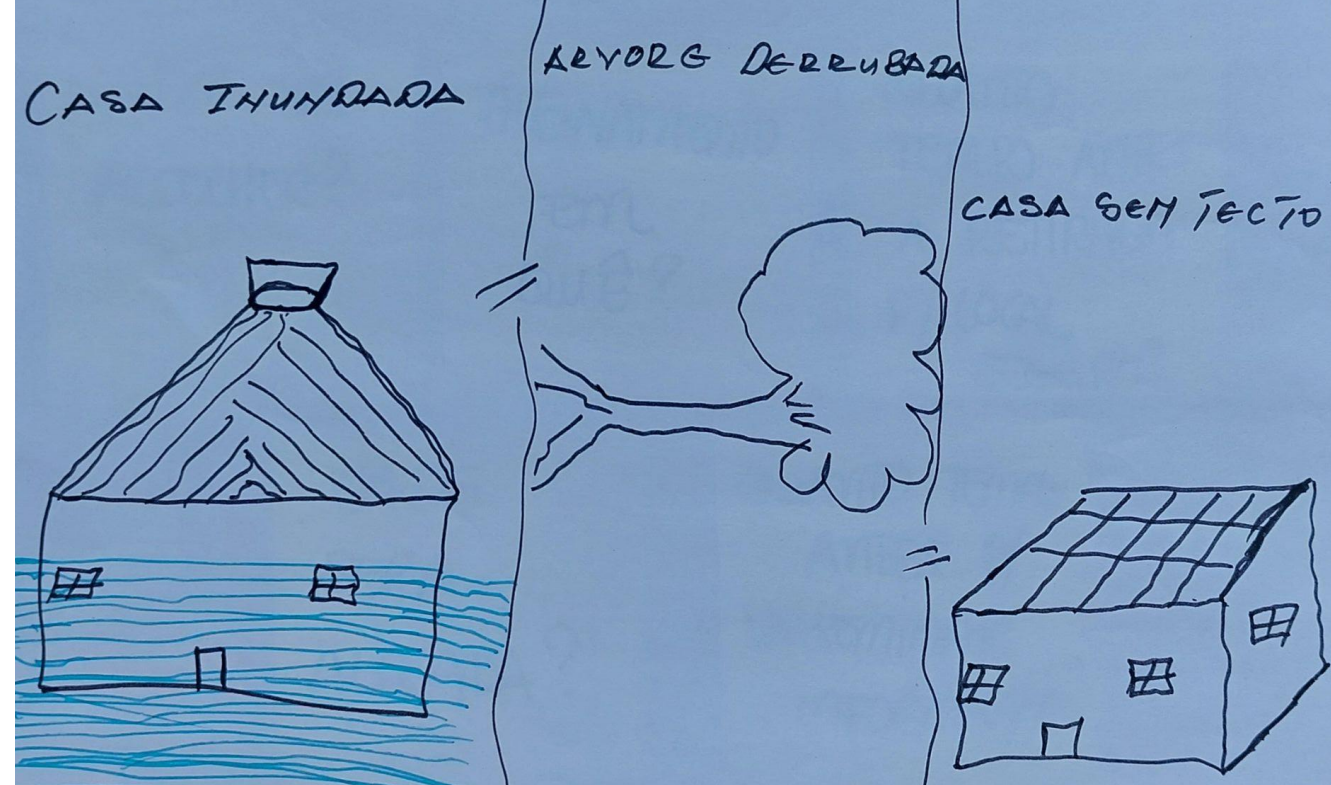 CASA INUNDADA
ARVORE DERRUBADA
CASA SEM TECTO